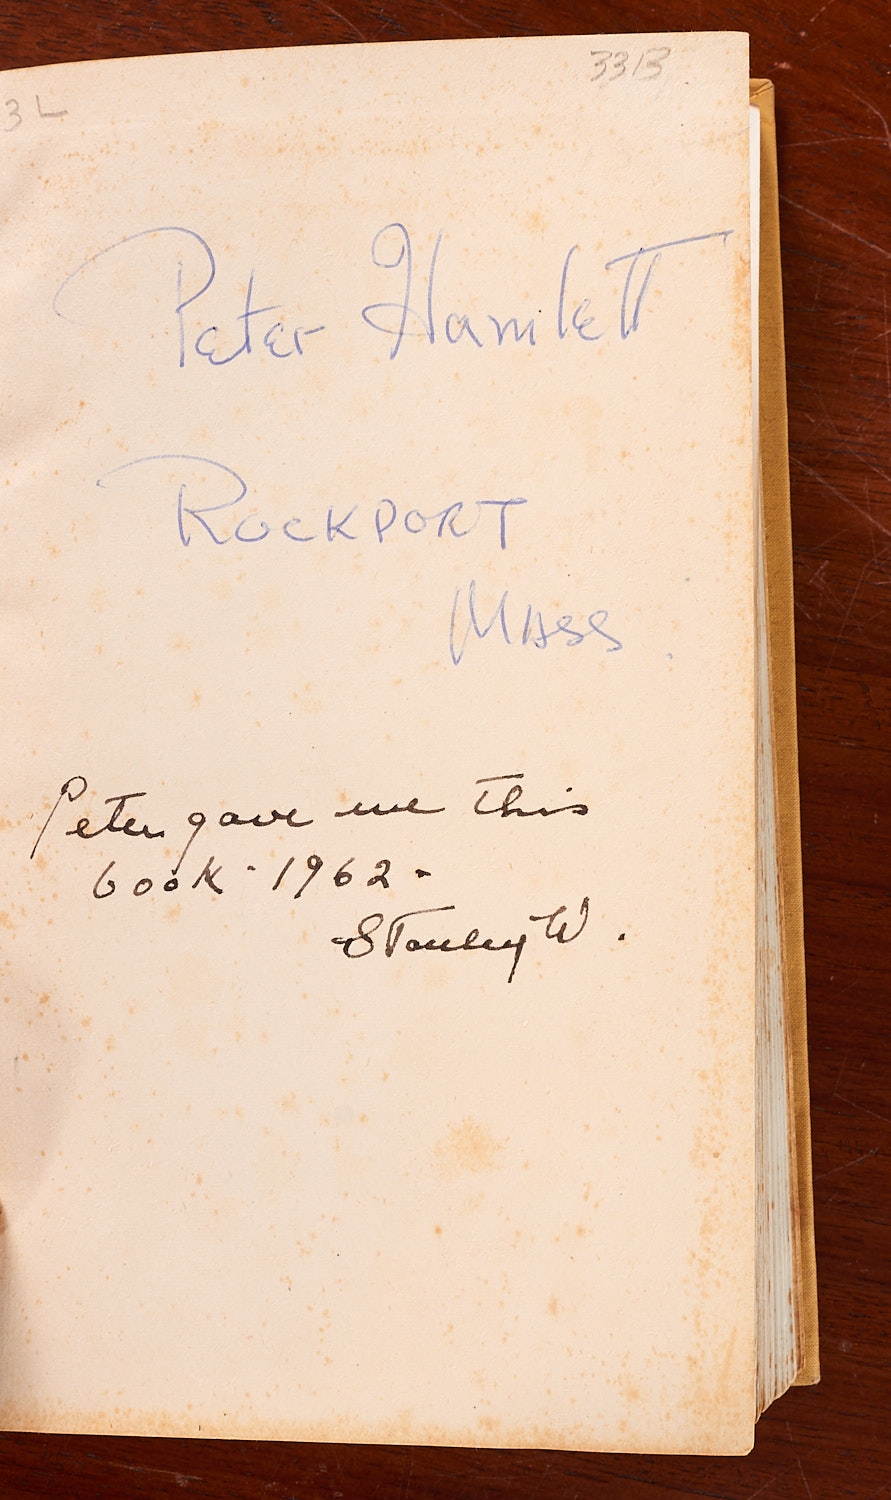 3L
33B
Peter Hamlett
ROCKPORT
MASS.
Peter gave me this
book - 1962 -
Stanley W.